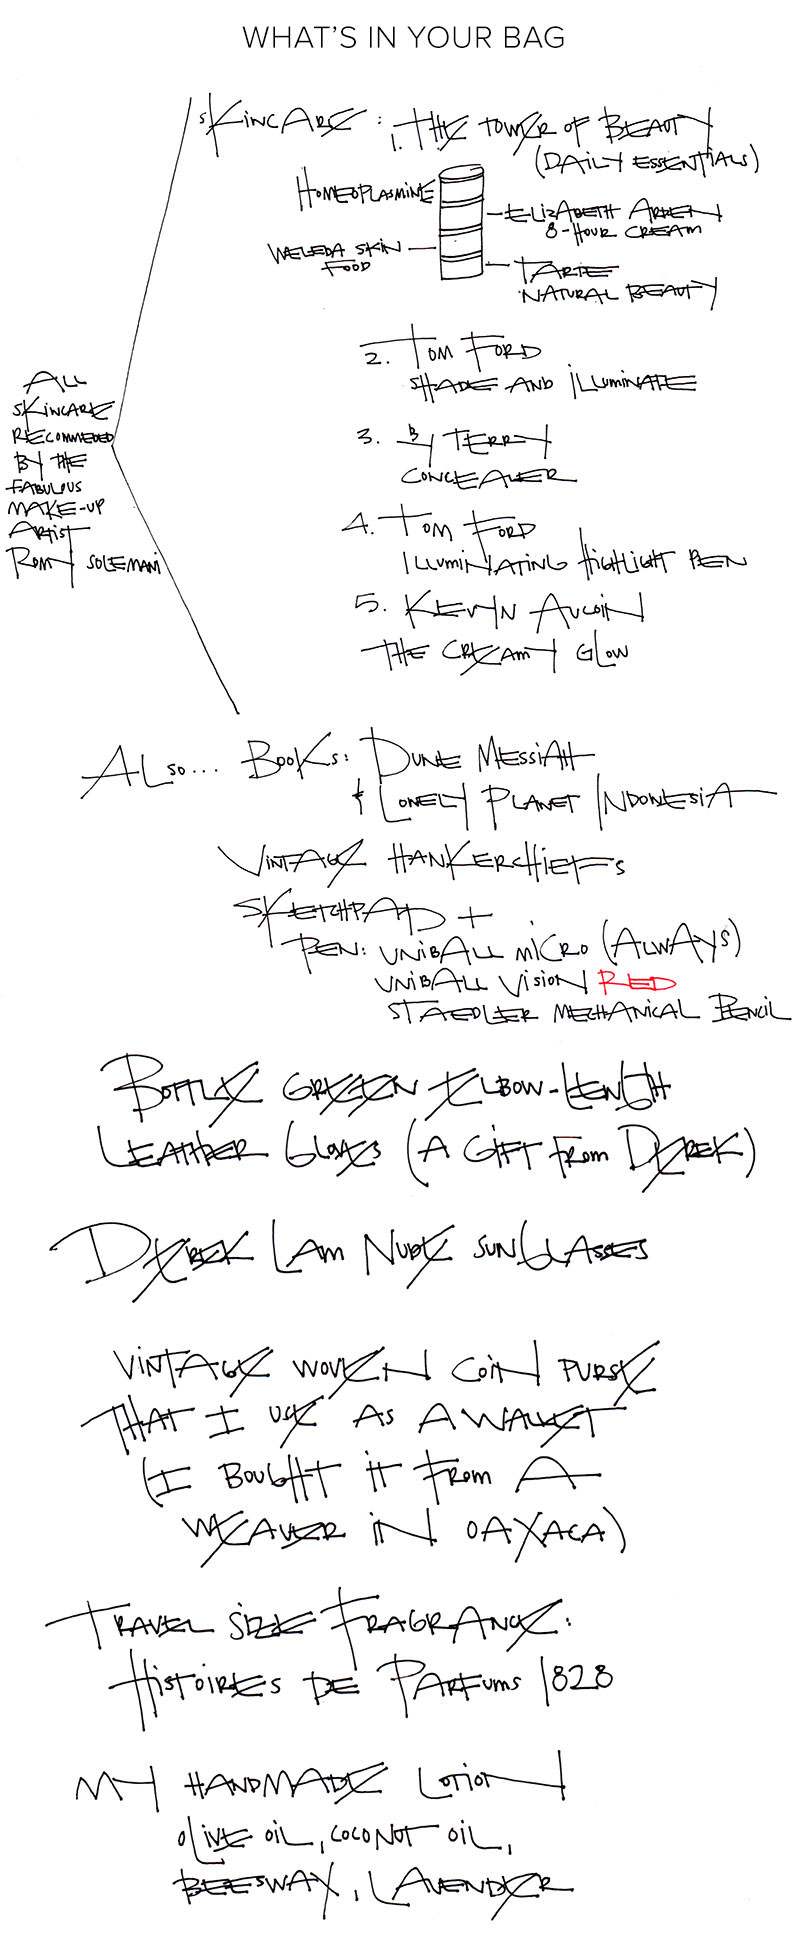 WHAT'S IN YOUR BAG
SKINCARE: 1. THE TOWER OF BEAUTY
(DAILY ESSENTIALS)
HOMEOPLASMINE
ELIZABETH ARDEN
8-HOUR CREAM
WELEDA SKIN
FOOD
TARTE
NATURAL BEAUTY
2. TOM FORD
SHADE AND ILLUMINATE
3. BY TERRY
CONCEALER
4. TOM FORD
ILLUMINATING HIGHLIGHT PEN
5. KEVYN AUCOIN
THE CREAMY GLOW
ALL
SKINCARE
RECOMMEDED
BY THE
FABULOUS
MAKE-UP
ARTIST
ROMY SOLEMANI
ALSO... BOOKS: DUNE MESSIAH
+ LONELY PLANET INDONESIA
VINTAGE HANKERCHIEFS
SKETCHPAD +
PEN: UNIBALL MICRO (ALWAYS)
UNIBALL VISION RED
STAEDLER MECHANICAL PENCIL
BOTTLE GREEN ELBOW-LENGTH
LEATHER GLOVES (A GIFT FROM DEREK)
DEREK LAM NUDE SUNGLASSES
VINTAGE WOVEN COIN PURSE
THAT I USE AS A WALLET
(I BOUGHT IT FROM A
WEAVER IN OAXACA)
TRAVEL SIZE FRAGRANCE:
HISTOIRES DE PARFUMS 1828
MY HANDMADE LOTION
OLIVE OIL, COCONUT OIL,
BEESWAX, LAVENDER